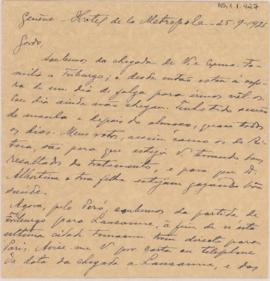 Genève - Hotel de la Metropole - 25-9-1921
Gordo,
Soubemos da chegada de V. e
a Friburgo; e desde então estou á espera
de um dia de folga para irmos vel-os
dia ainda não chegou. Tenho tido
de manhã e depois do almoço, quasi todos
os dias. Meus votos, assim como os de Ri-
são para que esteja V. tirando bons
resultados do tratamento e para que D.
Albertina e tua filha estejam gozando bôa
saude.
Agora, pelo soubemos da partida de
Friburgo para Lausanne, a fim de n'esta
ultima cidade tomarem trem directo para
Pariz. Avise-me V. por carta ou telephone
da data da chegada a Lausanne, e das